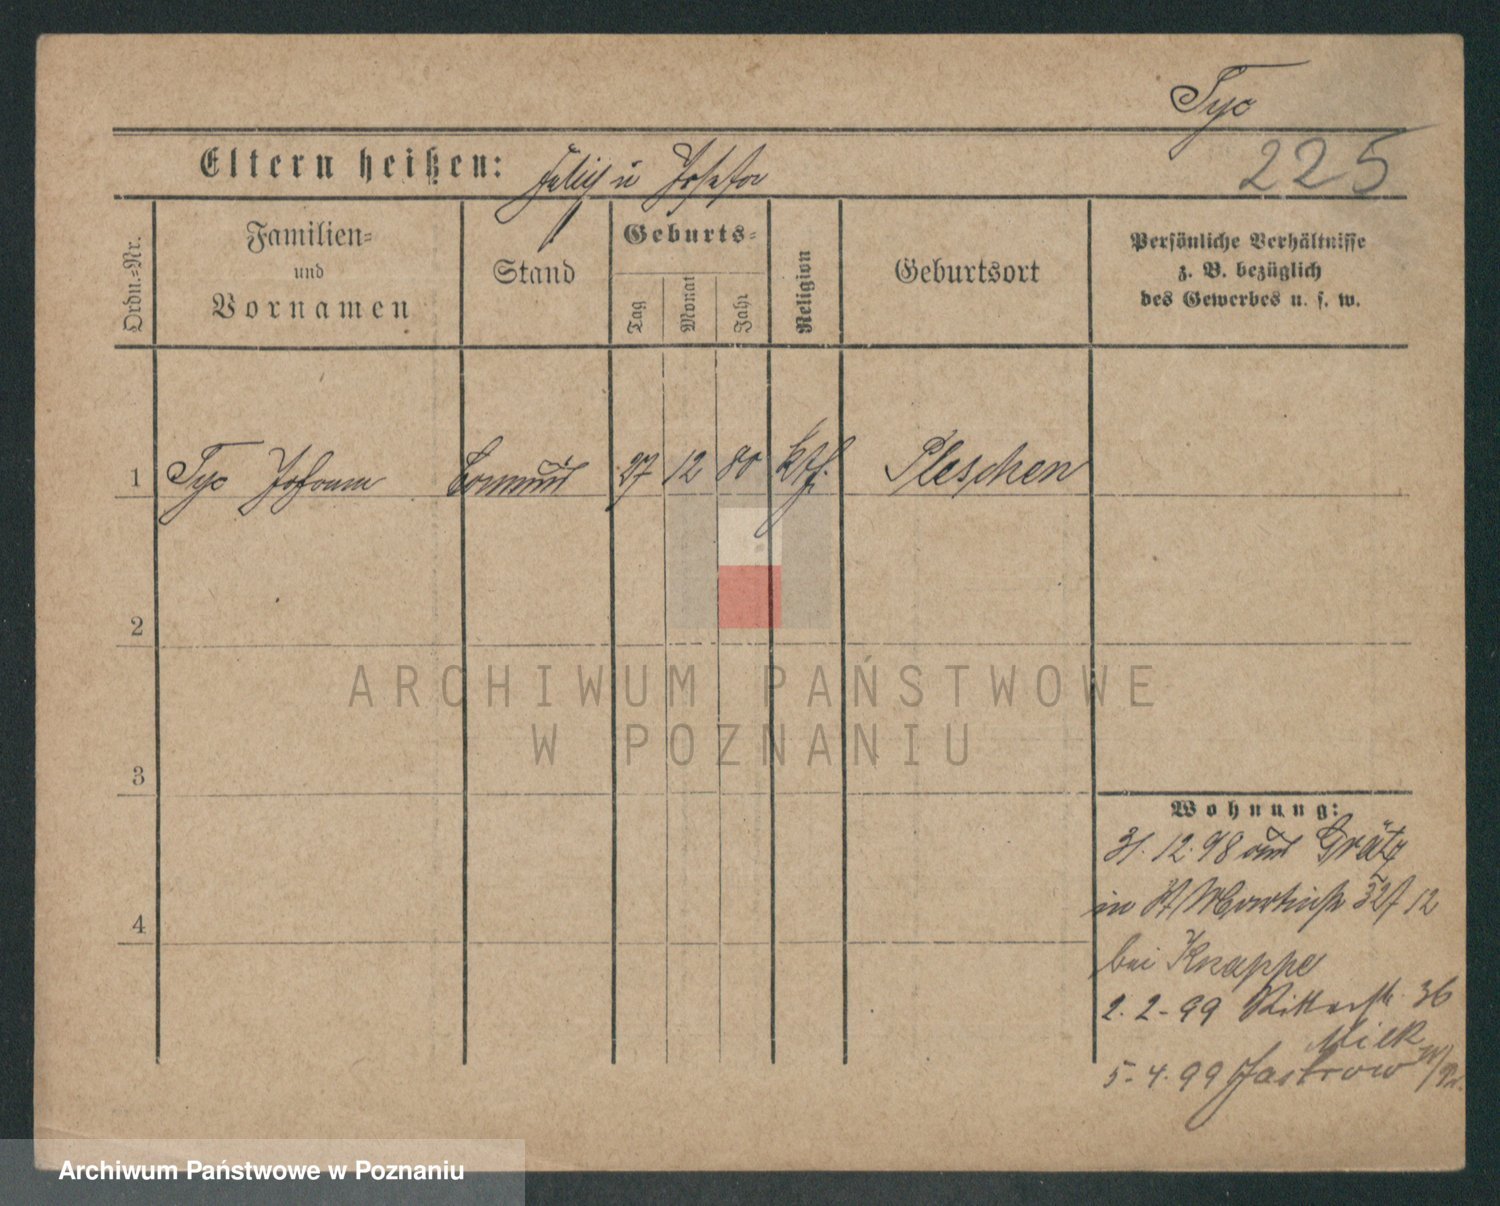 Tyc
225
Eltern heißen: Felix u Josefa
Ordn.-Nr.
Familien-
und
Vornamen
Stand
Geburts-
Tag
Monat
Jahr
Religion
Geburtsort
Persönliche Verhältnisse
z. B. bezüglich
des Gewerbes u. s. w.
1 Tyc Johann Commis 27 12 80 kth. Pleschen
2
3
4
Wohnung:
31. 12. 98 aus Grätz
in St Martinstr 12
bei Knappe
2. 2. 99 Ritterstr. 36
Milk
5. 4. 99 Jastrow W/Pr.
ARCHIWUM PAŃSTWOWE
W POZNANIU
Archiwum Państwowe w Poznaniu